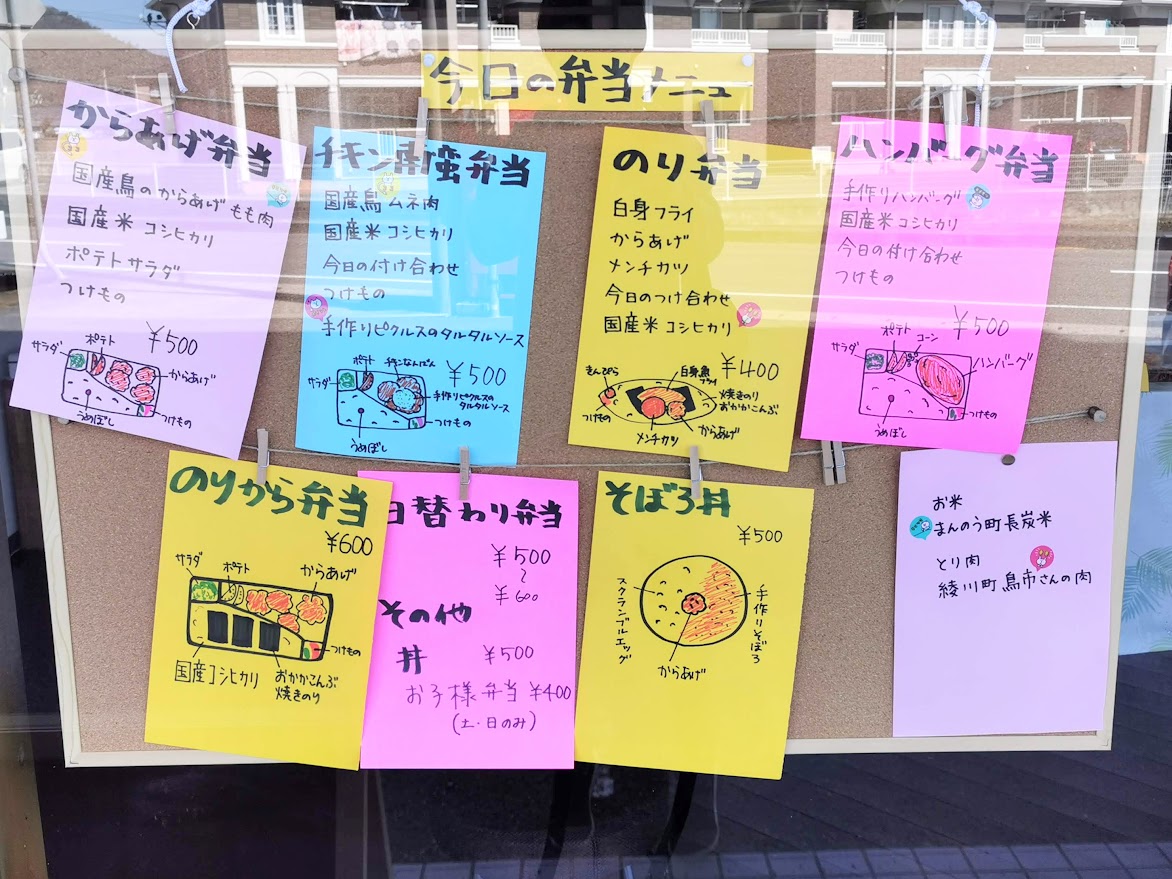 今日の弁当メニュー
からあげ弁当
国産鳥のからあげ もも肉
国産米 コシヒカリ
ポテトサラダ
つけもの
¥500
サラダ
ポテト
からあげ
うめぼし
つけもの
チキン南蛮弁当
国産鳥ムネ肉
国産米 コシヒカリ
今日の付け合わせ
つけもの
手作りピクルスのタルタルソース
¥500
サラダ
ポテト
チキンなんばん
手作りピクルスの
タルタルソース
つけもの
うめぼし
のり弁当
白身フライ
からあげ
メンチカツ
今日のつけ合わせ
国産米 コシヒカリ
¥400
きんぴら
白身魚
フライ
焼きのり
おかかこんぶ
つけもの
メンチカツ
からあげ
ハンバーグ弁当
手作りハンバーグ
国産米 コシヒカリ
今日の付け合わせ
つけもの
¥500
サラダ
ポテト
コーン
ハンバーグ
うめぼし
つけもの
のりから弁当
¥600
サラダ
ポテト
からあげ
つけもの
国産コシヒカリ
おかかこんぶ
焼きのり
日替わり弁当
¥500
~
¥600
その他
丼 ¥500
お子様弁当 ¥400
(土・日のみ)
そぼろ丼
¥500
スクランブルエッグ
手作りそぼろ
からあげ
お米
まんのう町長炭米
とり肉
綾川町鳥市さんの肉